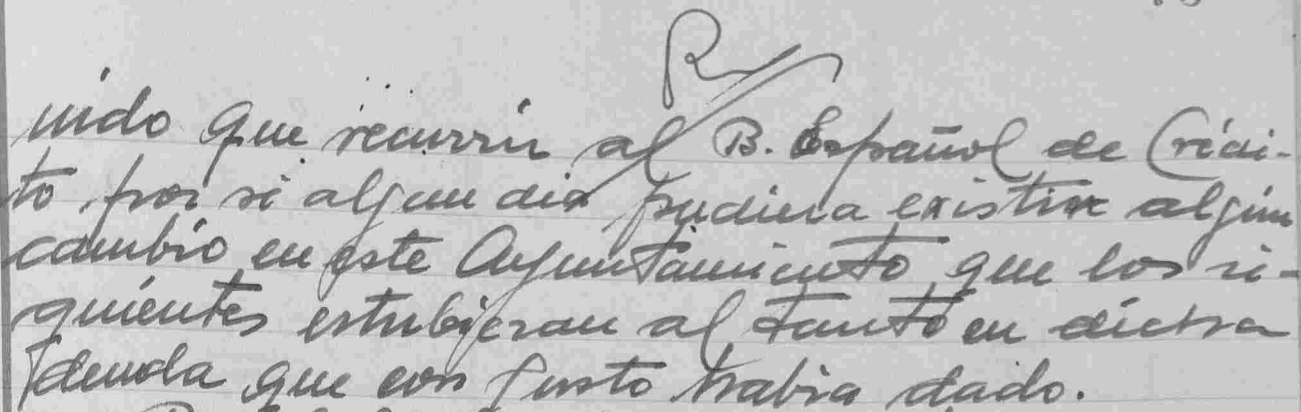 nido que recurrir al B. Español de Crédi-
to, por si algun dia pudiera existir algún
cambio en este Ayuntamiento que los si-
guientes estubieran al tanto en dicha
deuda que con gusto habia dado.